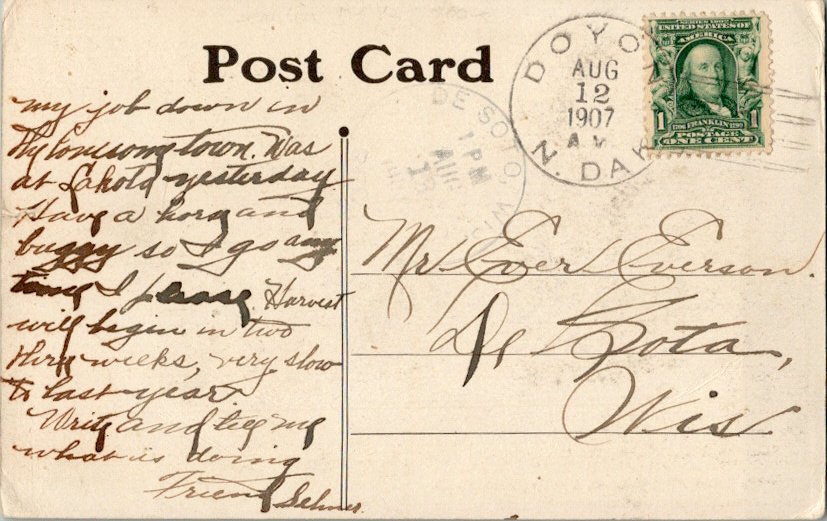 Post Card
DOYON
AUG
12
1907
N. DAK.
SERIES 1902
AMERICA
1 1
FRANKLIN
POSTAGE
ONE CENT
DE SOTO, WIS
1 PM
AUG
my job down in
thy lonesome town. Was
at Lakota yesterday
Have a horse and
buggy so I go any
time I please. Harvest
will begin in two
three weeks, very slow
to last year.
Write and tell me
what is doing
Friend Selmer
Mr. Ever Everson.
De Sota,
Wis